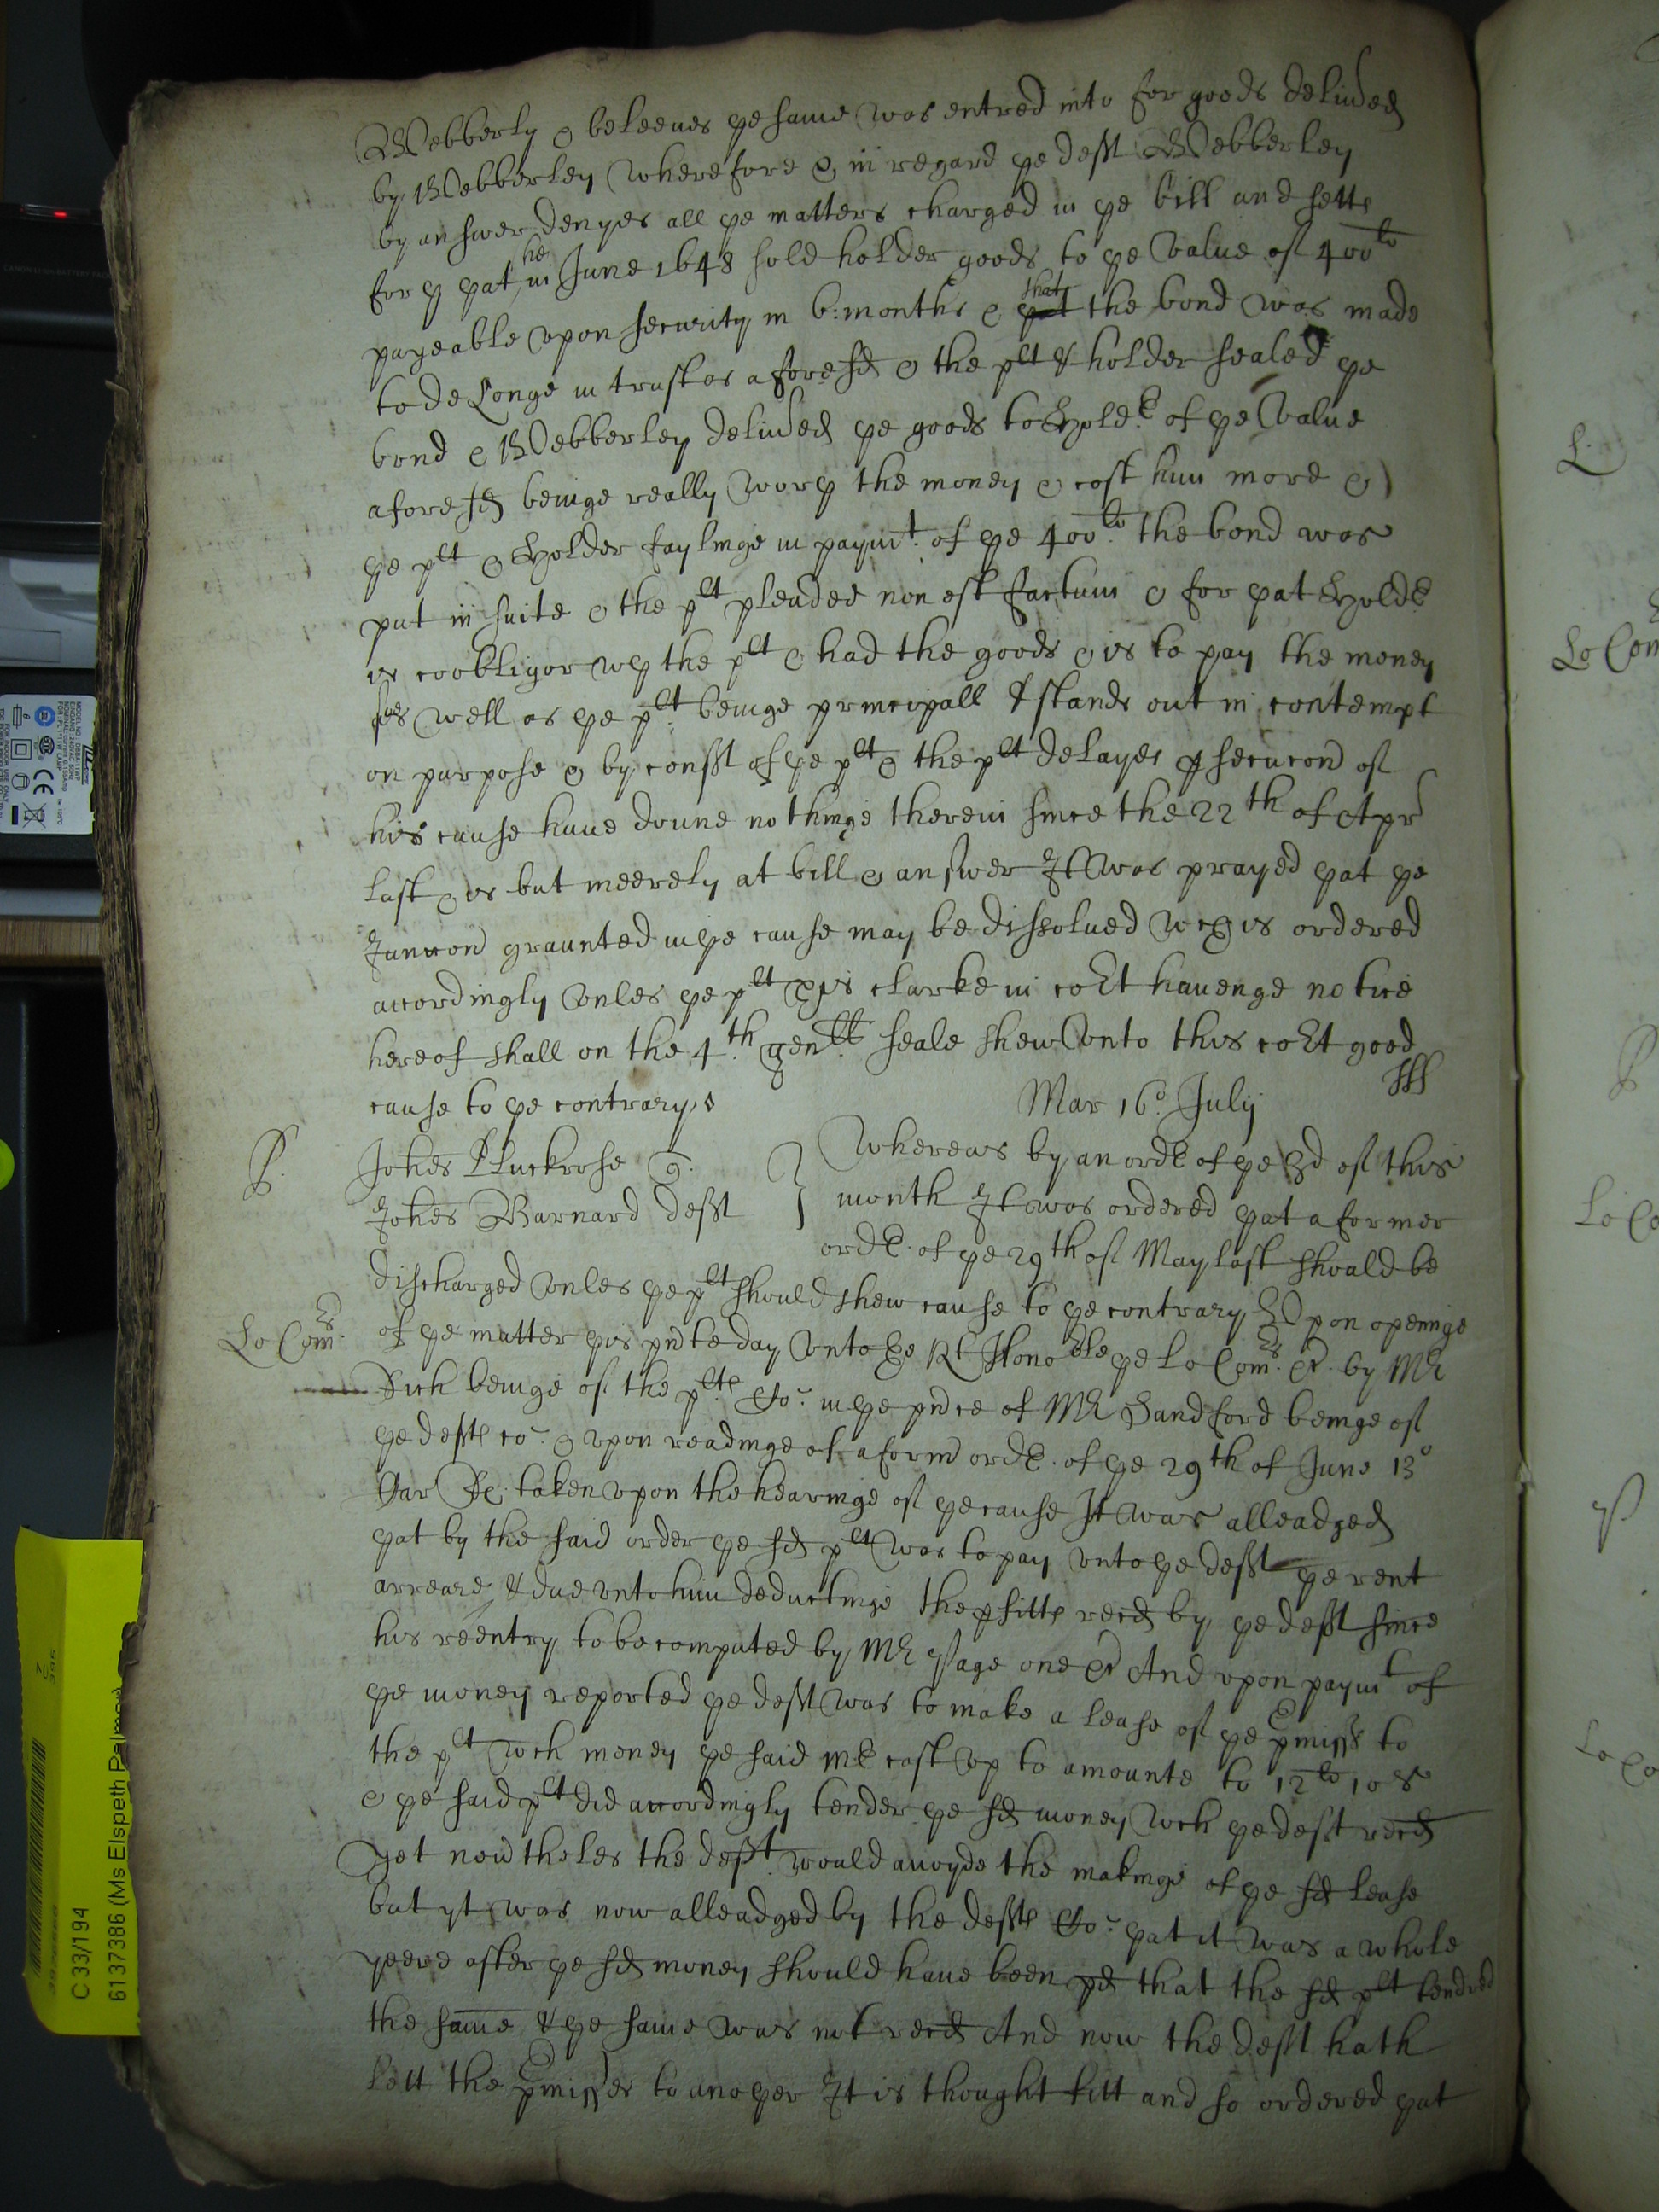 Webberly & beleeues ye same was entred into for goods deliued
by Webberley Wherefore & in regard ye deft Webberley
by answer denyes all ye matters charged in ye bill and sette
for y yat he in June 1648 sold holder goods to ye value of 400lb
payeable vpon security in 6: months & that the bond was made
to de Longe in trust as aforesd & the plt & holder sealed ye
bond & Webberley deliued ye goods to Holdr of ye value
aforesd beinge really wory the money & cost him more &
ye plt & Holder faylinge in paymt. of ye 400lb. the bond was
put in suite & the plt pleaded non est factum & for yat Holdr
is coobligor wy the plt & had the goods & is to pay the money
as well as ye plt beinge principall & stands out in contempt
on purpose & by consst of ye plt & the plt delayes psecucon of
his cause haue donne nothinge therein since the 22th of Apr
last & is but meerely at bill & answer It was prayed yat ye
Junccon graunted in ye cause may be dissolued wch is ordered
accordingly vnles ye plt his clarke in cort hauenge notice
hereof shall on the 4th. genll seale shew vnto this cort good
cause to ye contrary
Mar 16o. July
P.
Johes Pluckrose q.
Johes Barnard deft
Whereas by an ordr of ye 3d of this
month It was ordered yat a former
ordr. of ye 29th of May last should be
discharged vnles ye plt should shew cause to ye contrary Vpon openinge
Lo Comrs.
of ye matter yis pnte day vnto ye Rt Honoble ye Lo Comrs. &. by Mr
beinge of the plts Co. in ye pnce of Mr Sandford beinge of
ye defts co. & vpon readinge of a formr ordr. of ye 29th of June 13o
Car Rs. taken vpon the hearinge of ye cause It was alleadged
yat by the said order ye sd plt was to pay vnto ye deft ye rent
arreare & due vnto him deductinge the pfitts recd by ye deft since
his reentry to be computed by Mr Page one &c And vpon paymt of
ye money reported ye deft was to make a lease of ye pmisss to
the plt wch money ye said Mr cast vp to amounte to 12lb 10s
& ye said plt did accordingly tender ye sd money wch ye deft recd
yet neutheles the deft. would auoyde the makinge of ye sd lease
but yt was now alleadged by the defts Co. yat it was a whole
yeere after ye sd money should haue been pd that the sd plt tendred
the same & ye same was not recd And now the deft hath
lett the pmisses to anoyer It is thought fitt and so ordered yat
C 33/194
6137386 (Ms Elspeth Palmer)